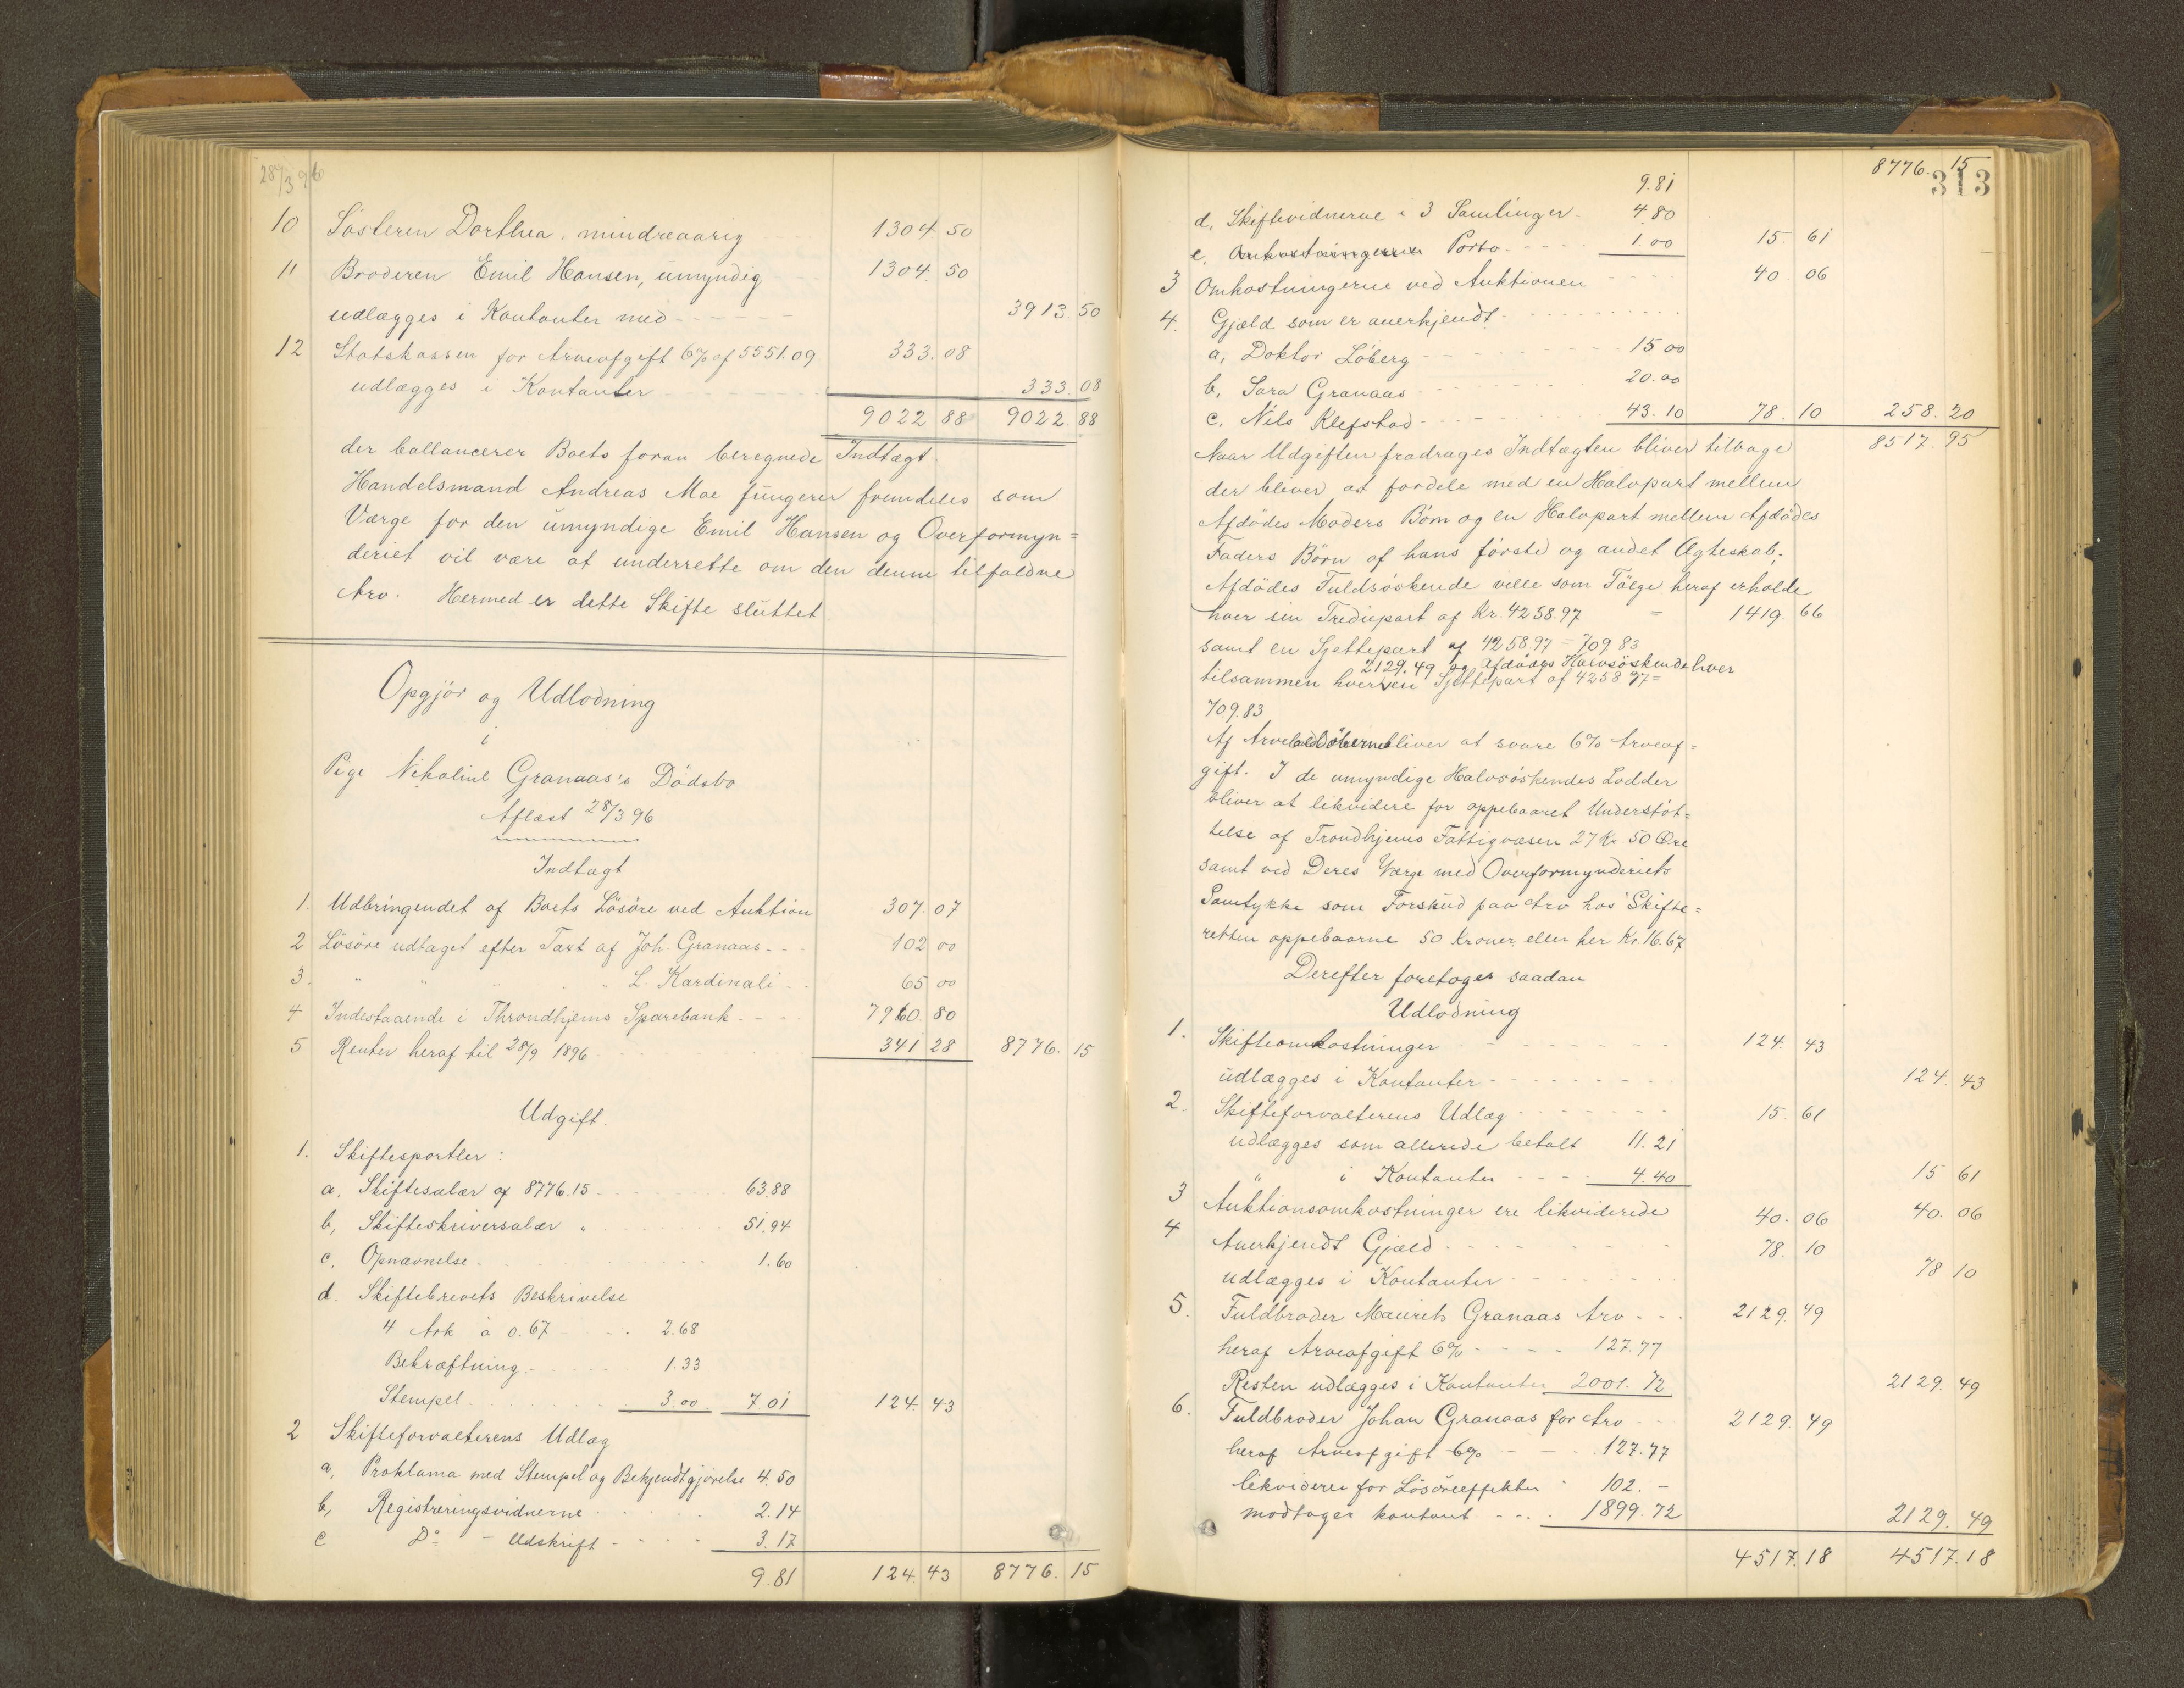 28/3 96
10 Søsteren Dorthea, mindreaarig 1304 50
11 Broderen Emil Hansen, umyndig 1304. 50
udlægges i Kontanter med 3913. 50
12 Statskassen for Arveafgift 6% af 5551.09 333. 08
udlægges i Kontanter 333. 08
9022 88 9022. 88
der ballancerer Boets foran beregnede Indtægt.
Handelsmand Andreas Moe fungerer fremdeles som
Værge for den umyndige Emil Hansen og Overformyn=
deriet vil være at underrette om den denne tilfaldne
Arv. Hermed er dette Skifte sluttet
Opgjör og Udlodning
i
Pige Nikoline Granaas's Dödsbo
Aflæst 28/3 96
Indtægt
1. Udbringendet af Boets Lösöre ved Auktion 307. 07
2 Lösöre udtaget efter Taxt af Joh. Granaas 102 00
3. " " " " " L. Kardinali 65 00
4 Indestaaende i Throndhjems Sparebank 7960. 80
5 Renter heraf til 28/9 1896 341 28 8776. 15
Udgift.
1. Skiftesportler:
a. Skiftesalær af 8776.15 63.88
b, Skifteskriversalær " 51.94
c. Opnævnelse 1.60
d. Skiftebrevets Beskrivelse
4 Ark à 0.67 2.68
Bekræftning 1.33
Stempel 3.00 7.01 124. 43
2 Skifteforvalterens Udlæg
a, Proklama med Stempel og Bekjendtgjörelse 4.50
b, Registreringsvidnerne 2.14
c Do - Udskrift 3.17
9.81 124. 43 8776. 15
8776. 15
313
9.81
d. Skiftevidnerne i 3 Samlinger 4.80
e, Omkostningerne Porto 1.00 15. 61
3 Omkostningerne ved Auktionen 40. 06
4. Gjæld som er anerkjendt
a, Doktor Löberg 15 00
b, Sara Granaas 20.00
c, Nils Klefstad 43.10 78. 10 258. 20
Naar Udgiften fradrages Indtægten bliver tilbage 8517. 95
der bliver at fordele med en Halvpart mellem
Afdödes Moders Börn og en Halvpart mellem Afdödes
Faders Börn af hans förste og andet Ægteskab;
Afdödes Fuldsöskende ville som Fölge heraf erholde
hver sin Trediepart af Kr. 4258.97 = 1419. 66
samt en Sjettepart af 4258.97 = 709 83
2129.49 og Afdödes Halvsöskende hver
tilsammen hver en Sjettepart af 4258 97 =
709.83
Af bliver at svare 6% Arveaf=
gift. I de umyndige Halvsöskendes Lodder
bliver at likvidere for oppebaaret Understöt=
telse af Trondhjems Fattigvæsen 27 Kr 50 Öre
samt ved Deres Værge med Overformynderiets
Samtykke som Forskud paa Arv hos Skifte=
retten oppebaarne 50 Kroner eller her Kr. 16.67
Derefter foretoges saadan
Udlodning
1. Skifteomkostninger 124. 43
udlægges i Kontanter 124. 43
2. Skifteforvalterens Udlæg 15. 61
udlægges som allerede betalt 11.21
" i Kontanter 4.40 15 61
3 Auktionsomkostninger ere likviderede 40. 06 40. 06
4 Anerkjendt Gjæld 78. 10
udlægges i Kontanter 78 10
5. Fuldbroder Maurits Granaas Arv 2129. 49
heraf Arveafgift 6% 127.77
Resten udlægges i Kontanter 2001. 72 2129. 49
6. Fuldbroder Johan Granaas for Arv 2129. 49
heraf Arveafgift 6% 127.77
likvideres for Lösöreeffekter 102. -
modtager kontant 1899.72 2129. 49
4517. 18 4517. 18